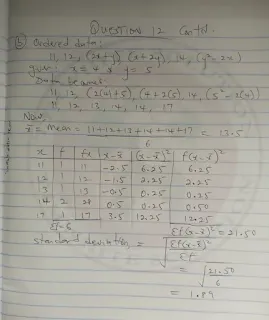 Question 12 Contd.
(b) Ordered data:
11, 12, (2x+y), (x+2y), 14, (y²-2x)
given: x = 4, y = 5
Data became:
11, 12, (2(4)+5), (4+2(5), 14, (5²-2(4))
11, 12, 13, 14, 14, 17
Now,
x̄ = mean = 11+12+13+14+14+17 = 13.5
6
x f fx x-x̄ (x-x̄)² f(x-x̄)²
11 1 11 -2.5 6.25 6.25
12 1 12 -1.5 2.25 2.25
13 1 13 -0.5 0.25 0.25
14 2 28 0.5 0.25 0.50
17 1 17 3.5 12.25 12.25
Σf=6 Σf(x-x̄)² = 21.50
standard deviation = √Σf(x-x̄)²
Σf
= √21.50
6
= 1.89